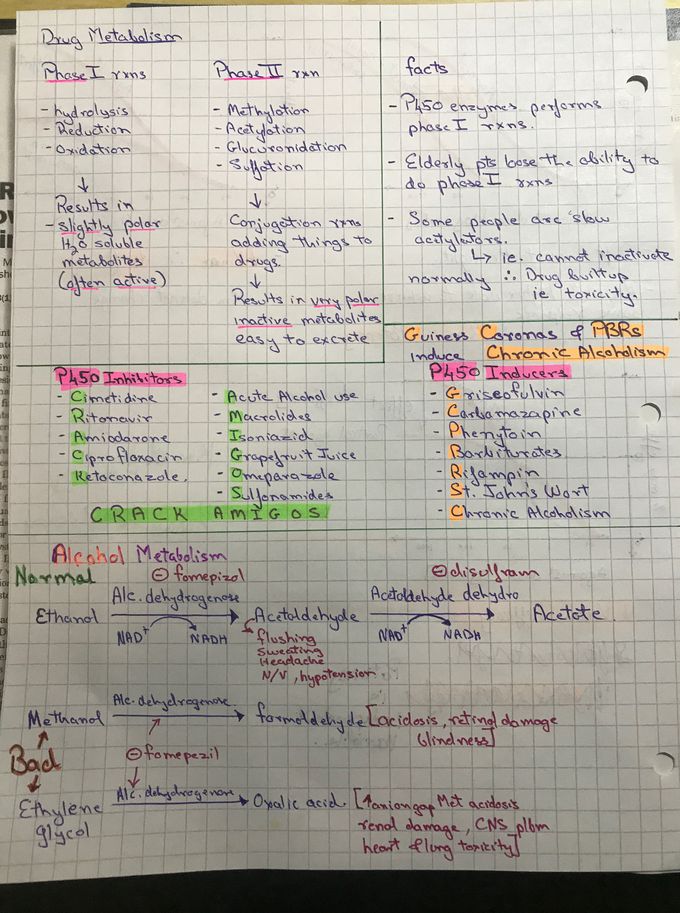 Drug Metabolism
Phase I rxns
- hydrolysis
- Reduction
- Oxidation
↓
Results in
- slightly polar
H₂O soluble
metabolites
(often active)
Phase II rxn
- Methylation
- Acetylation
- Glucuronidation
- Sulfation
↓
Conjugation rxns
adding things to
drugs
↓
Results in very polar
inactive metabolites
easy to excrete
facts
- P450 enzymes performs
phase I rxns.
- Elderly pts lose the ability to
do phase I rxns
- Some people are slow
acetylators.
↳ ie. cannot inactivate
normally ∴ Drug builtup
ie toxicity.
P450 Inhibitors
- Cimetidine
- Ritonavir
- Amiodarone
- Ciprofloxacin
- Ketoconazole.
- Acute Alcohol use
- Macrolides
- Isoniazid
- Grapefruit Juice
- Omeparazole
- Sulfonamides
CRACK AMIGOS
Guiness Coronas & PBRs
induce Chronic Alcoholism
P450 Inducers
- Griseofulvin
- Carbamazapine
- Phenytoin
- Barbiturates
- Rifampin
- St. John's Wort
- Chronic Alcoholism
Alcohol Metabolism
Normal
⊖ fomepizol
⊖ disulfram
Alc. dehydrogenase
Acetaldehyde dehydro
Ethanol → Acetoldehyde → Acetate
NAD⁺ NADH NAD⁺ NADH
flushing
Sweating
Headache
N/V, hypotension
Alc. dehydrogenase
Methanol → formaldehyde [acidosis, retinal damage
blindness]
Bad
⊖ fomepezil
Alc. dehydrogenase
Ethylene → Oxalic acid. [↑anion gap Met acidosis
glycol
renal damage, CNS plbm
heart & lung toxicity]